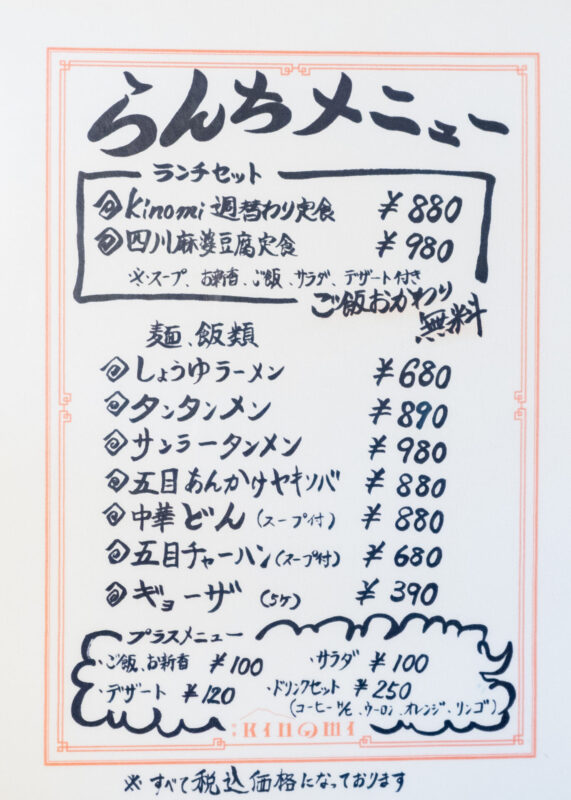 らんちメニュー
ランチセット
Kinomi 週替わり定食 ¥880
四川麻婆豆腐定食 ¥980
※スープ、お新香、ご飯、サラダ、デザート付き
ご飯おかわり
無料
麺、飯類
しょうゆラーメン ¥680
タンタンメン ¥890
サンラータンメン ¥980
五目あんかけヤキソバ ¥880
中華どん(スープ付) ¥880
五目チャーハン(スープ付) ¥680
ギョーザ (5ケ) ¥390
プラスメニュー
・ご飯、お新香 ¥100 ・サラダ ¥100
・デザート ¥120 ・ドリンクセット ¥250
(コーヒー H/C、ウーロン、オレンジ、リンゴ)
KINOMI
※すべて税込価格になっております